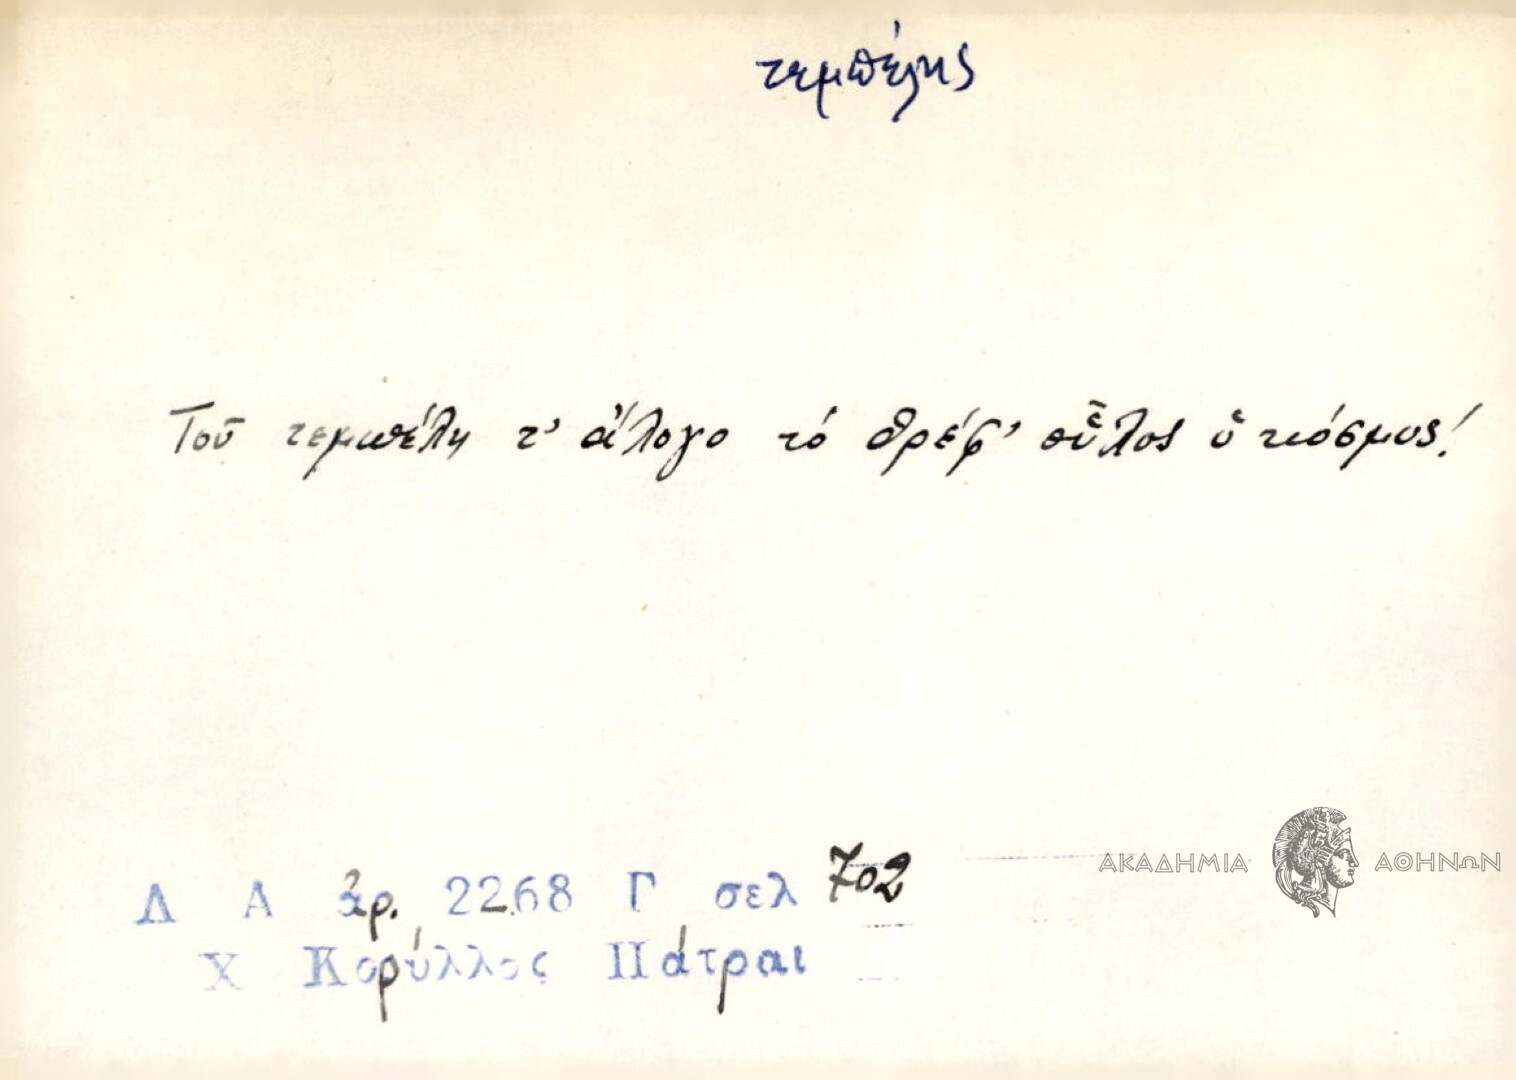 τεμπέλης
Τοῦ τεμπέλη τ' ἄλογο τό θρέφ' οὗλος ὁ κόσμος!
Λ Α ἀρ. 2268 Γ σελ 702
Χ Κορύλλος Πάτραι
ΑΚΑΔΗΜΙΑ ΑΘΗΝΩΝ